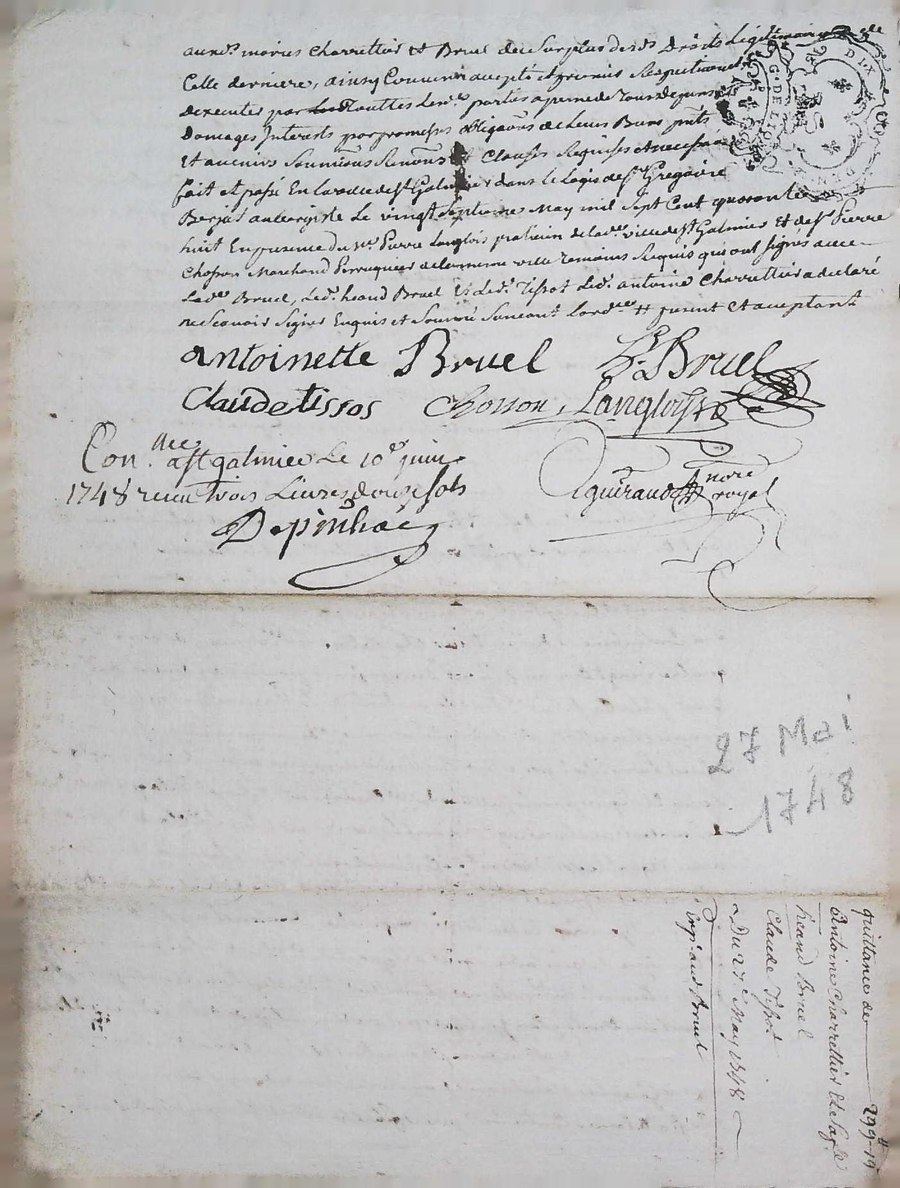 auxds. mariés Charrettier et Bruel du Surplus desds. Droits Légitimaires de
Celle derniere, ainsy Convenu accepté et promis Respectivement
dexecuter par touttes lesds. parties a peine de tous depans
domages Interests par promesses obligaons. de leurs Biens pnts.
Et avenirs Soumissions Renons. et Clauses Requises et necessaires
fait et passé En la ville de st. Galmier dans le Logis de sr. Gregoire
Berjat aubergiste Le vingt Septieme May mil Sept Cent quarante
huit En presence du Mr. Pierre Langlois praticien de lad. ville de st. Galmier Et de sr. Pierre
Chosson Marchand Perruquier de la meme ville temoins Requis qui ont signés avec
Lad. Bruel, Led. heaud Bruel Et Led. Tissot Led. antoine Charrettier a declaré
ne Scavoir Signer Enquis et Sommé Suivant Lordce. # present et acceptant
antoinette Bruel Bruel
Claude tissos Chosson, Langlois
Con.llée a st galmier Le 10e juin
1748 recu trois Livres douze sols
Depinhac
guiraud nore
royal
27 Mai
1748
quittance de 299-19
Antoine Charrettier Et de sa fe
heaud Bruel
Claude Tissot
Du 27e May 1748
Expn. aud Bruel
G. DE LION
DIX